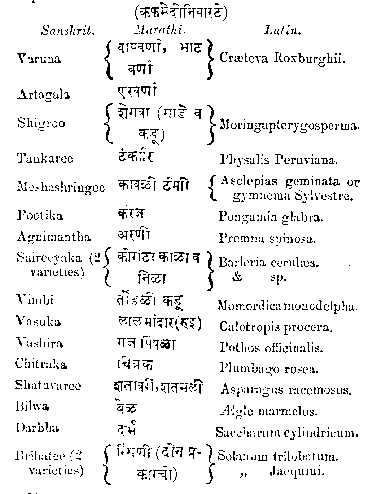 (कफमेदोनिवारटे)
Sanskrit. Marathi. Latin.
Varuna { वायवर्णा, भाट वर्णा } Cræteva Roxburghii.
Artagala एरवर्णा
Shigroo { शेगवा (गाडे व कडू) } Moringapterygosperma.
Tankaree टंकारि Physalis Peruviana.
Meshashringee कावळी { Asclepias geminata or gymnema Sylvestre.
Pootika करंज Pongamia glabra.
Agnimantha अरणी Premna spinosa.
Saireeyaka (2 varieties) { कोरांटा काळा व निळा } Barleria cerulæa. & sp.
Vimbi तोंडली कडू Momordica monodelpha.
Vasuka लाल मांदार (रुइ) Calotropis procera.
Vashira गज पिंपळी Pothos officinalis.
Chitraka चित्रक Plumbago rosea.
Shatavaree शतावरी, शतमुली Asparagus racemosus.
Bilwa बेल Ægle marmelus.
Darbha दर्भ Saccharum cylindricum.
Brihatee (2 varieties) { रिंगणी (दोन प्रकारची) } Solanum trilobatum. „ Jacquini.